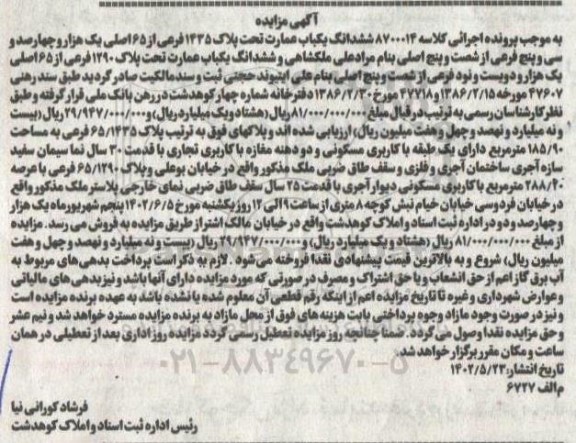 آگهی مزایده
به موجب پرونده اجرائی کلاسه ۸۷۰۰۰۱۴ ششدانگ یکباب عمارت تحت پلاک ۱۴۳۵ فرعی از ۶۵ اصلی یک هزار و چهارصد و
سی و پنج فرعی از شصت و پنج اصلی بنام مرادعلی ملکشاهی و ششدانگ یکباب عمارت تحت پلاک ۱۲۹۰ فرعی از ۶۵ اصلی
یک هزار و دویست و نود فرعی از شصت و پنج اصلی بنام علی ایتیوند حجتی ثبت و سند مالکیت صادر گردید طبق سند رهنی
۴۷۶۰۷ مورخه ۱۳۸۶/۲/۱۵ و ۴۷۷۱۸ مورخ ۱۳۸۶/۲/۳۰ دفترخانه شماره چهار کوهدشت در رهن بانک ملی قرار گرفته و طبق
نظر کارشناسان رسمی به ترتیب در قبال مبلغ ۸۱/۰۰۰/۰۰۰/۰۰۰ ریال (هشتاد و یک میلیارد ریال) و ۲۹/۹۴۷/۰۰۰/۰۰۰ ریال (بیست
و نه میلیارد و نهصد و چهل و هفت میلیون ریال) ارزیابی شده اند و پلاکهای فوق به ترتیب پلاک ۶۵/۱۴۳۵ فرعی به مساحت
۱۸۵/۹۰ مترمربع دارای یک طبقه با کاربری مسکونی و دو دهنه مغازه با کاربری تجاری با قدمت ۳۰ سال نما سیمان سفید
سازه آجری ساختمان آجری و فلزی و سقف طاق ضربی ملک مذکور واقع در خیابان بوعلی و پلاک ۶۵/۱۲۹۰ فرعی با عرصه
۲۸۸/۴۰ مترمربع با کاربری مسکونی دیوار آجری با قدمت ۲۵ سال سقف طاق ضربی نمای خارجی پلاستر ملک مذکور واقع
در خیابان فردوسی خیابان خیام نبش کوچه ۸ متری از ساعت ۹ الی ۱۲ روز یکشنبه مورخ ۱۴۰۲/۶/۵ پنجم شهریور ماه یک هزار
و چهارصد و دو در اداره ثبت اسناد و املاک کوهدشت واقع در خیابان مالک اشتر از طریق مزایده به فروش می رسد. مزایده
از مبلغ ۸۱/۰۰۰/۰۰۰/۰۰۰ ریال (هشتاد و یک میلیارد ریال) و ۲۹/۹۴۷/۰۰۰/۰۰۰ ریال (بیست و نه میلیارد و نهصد و چهل و هفت
میلیون ریال) شروع و به بالاترین قیمت پیشنهادی نقدا فروخته می شود . لازم به ذکر است پرداخت بدهی های مربوط به
آب برق گاز اعم از حق انشعاب و یا حق اشتراک و مصرف در صورتی که مورد مزایده دارای آنها باشد و نیز بدهی های مالیاتی
و عوارض شهرداری و غیره تا تاریخ مزایده اعم از اینکه رقم قطعی آن معلوم شده یا نشده باشد به عهده برنده مزایده است
و نیز در صورت وجود مازاد وجوه پرداختی بابت هزینه های فوق از محل مازاد به برنده مزایده مسترد خواهد شد و نیم عشر
و حق مزایده نقدا وصول می گردد. ضمنا چنانچه روز مزایده تعطیل رسمی گردد مزایده روز اداری بعد از تعطیلی در همان
ساعت و مکان مقرر برگزار خواهد شد.
تاریخ انتشار: ۱۴۰۲/۵/۲۳
م الف ۶۷۲۷
فرشاد کورانی نیا
رئیس اداره ثبت اسناد و املاک کوهدشت
۰۲۱-۸۸۳۴۹۶۷۰-۵